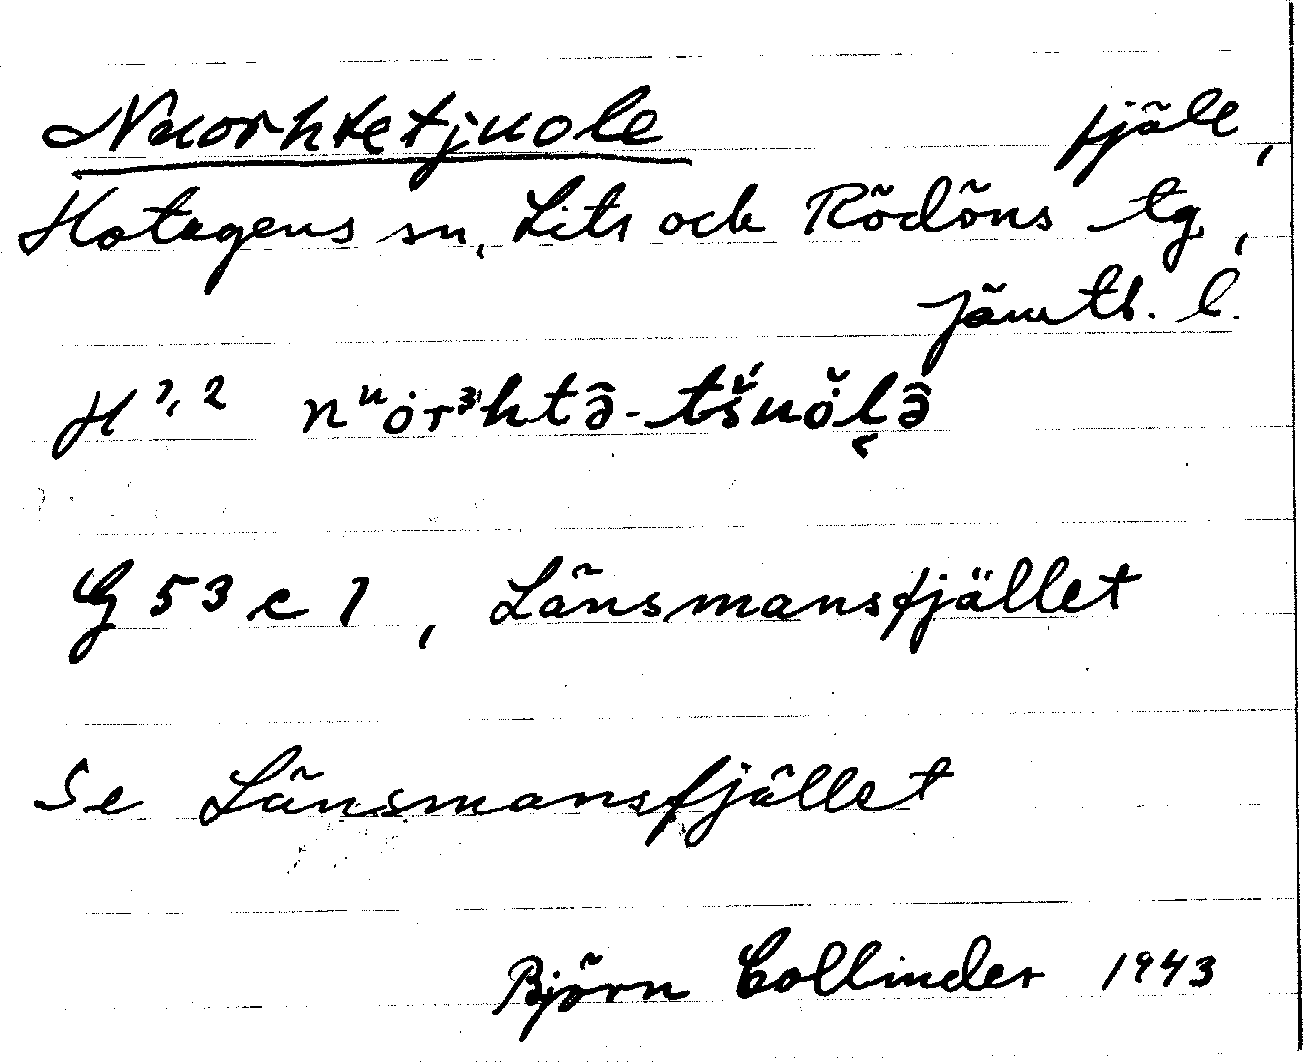 Nuorhtetjuole fjäll,
Hotagens sn, Lits och Rödöns tg,
Jämtl. l.
H 1, 2 nᵘȯrᵌhtə̑-tš́uȯ̆l̜ə̑
G 53 c 1, Länsmansfjället
Se Länsmansfjället
Björn Collinder 1943